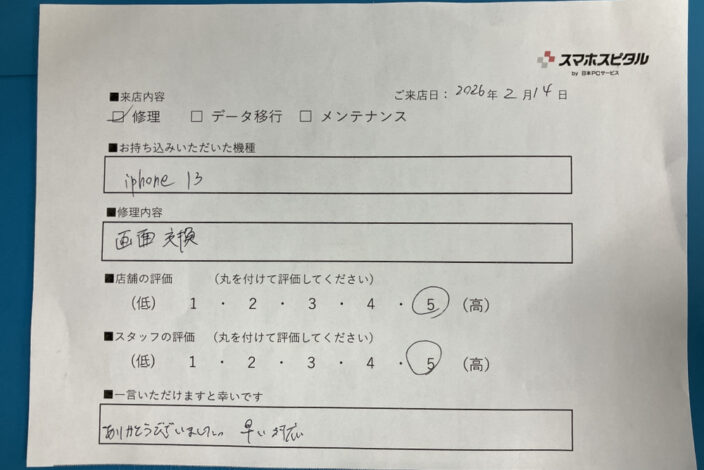 スマホスピタル
by 日本PCサービス
■来店内容
ご来店日：2026年 2 月 14 日
☑ 修理 □ データ移行 □ メンテナンス
■お持ち込みいただいた機種
iphone 13
■修理内容
画面交換
■店舗の評価 （丸を付けて評価してください）
（低） 1 ・ 2 ・ 3 ・ 4 ・ 5 （高）
■スタッフの評価 （丸を付けて評価してください）
（低） 1 ・ 2 ・ 3 ・ 4 ・ 5 （高）
■一言いただけますと幸いです
ありがとうございました。 早い対応